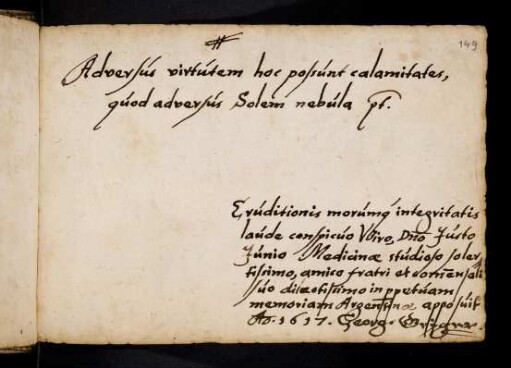 149
Adversús virtútem hoc possúnt calamitates,
qúod adversús Solem nebúla pt.
Erúditionis morúmq́ integritatis
laúde conspicúo Viro, Dño Jústo
Júnio Medicinæ stúdioso soler
tissimo, amico fratri et com̃ensali
súo dilectissimo in ppetúam
memoriam Argentinæ appo súit
Aº. 1617. Georg.